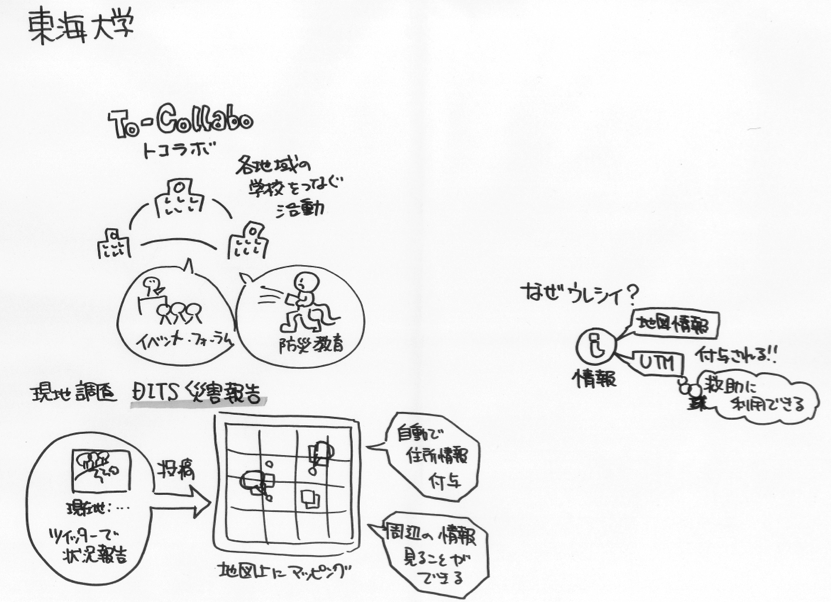 東海大学
To-Collabo
トコラボ
各地域の
学校をつなぐ
活動
イベント・フォーラム
防災教育
現地調査 DITS 災害報告
現在地:…
ツイッターで
状況報告
投稿
地図上にマッピング
自動で
住所情報
付与
周辺の情報
見ることが
できる
なぜウレシイ?
i
情報
地図情報
UTM
付与される!!
救助に
利用できる